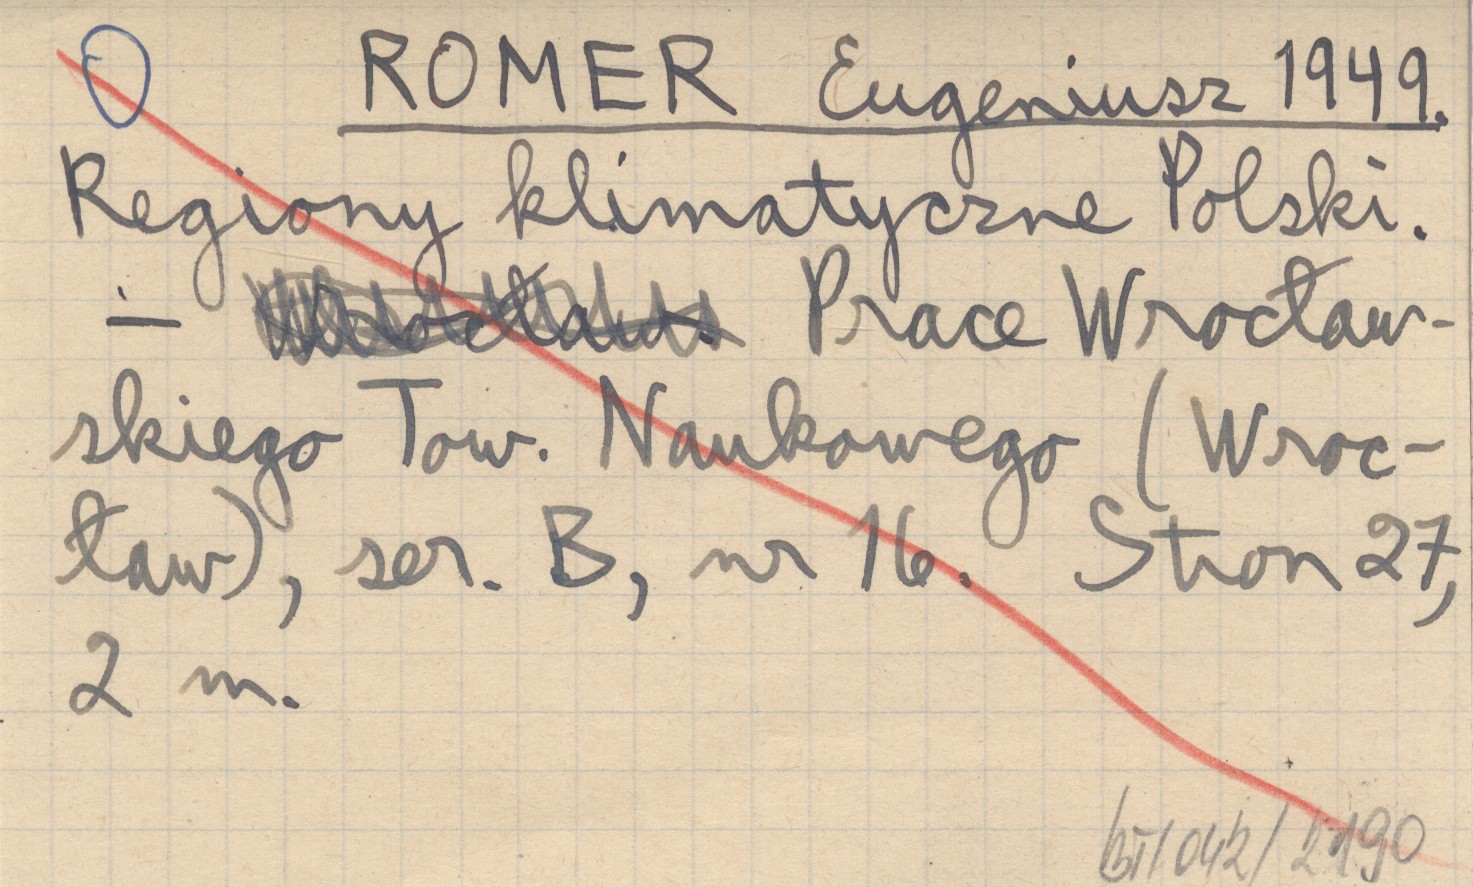 ROMER Eugeniusz 1949.
Regiony klimatyczne Polski.
— Wrocław. Prace Wrocław-
skiego Tow. Naukowego (Wroc-
ław), ser. B, nr 16. Stron 27,
2 m.
042/2190